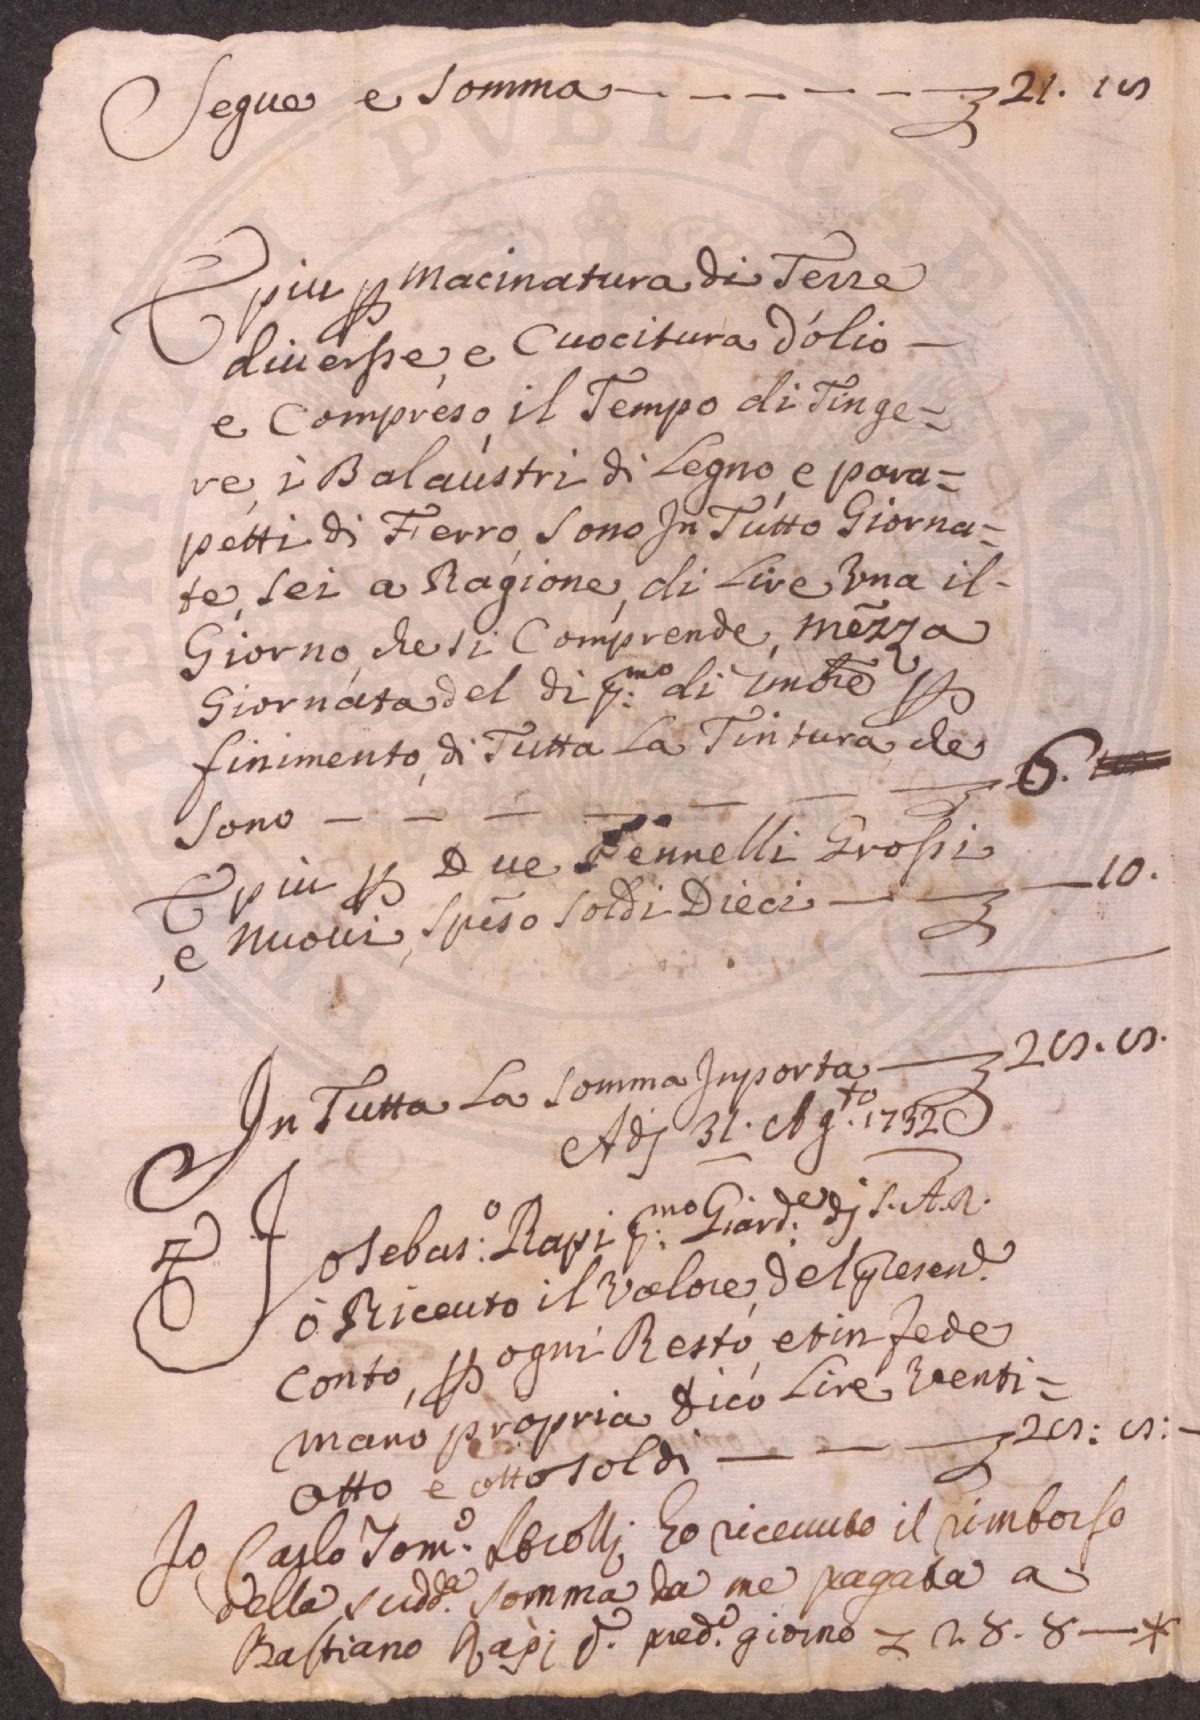 Segue e Somma — — — — — — 21. 18
E piu p macinatura di Terre
diuersse e Cuocitura d'olio —
e Compreso il Tempo di Tinge=
re i Balaustri di Legno e para=
petti di Ferro sono In Tutto Giorna=
te sei a Ragione di Lire Vna il-
Giorno che si Comprende mezza
Giornata del di p.mo di 7mbre p
finimento di Tutta La Tintura che
sono — — — — — — — 6.
E piu p Due Pennelli Grossi
e nuoui speso soldi Dieci — — — 10.
In Tutta La somma Inporta — 28. 8.
Adj 31. Ag.to 1732
Io Sebas.o Rapi p.mo Giard.e dj S. A. R.
ò Riceuto il Valore del presen.
Conto, p ogni Resto, et in fede
mano propria dico Lire Venti=
otto e otto soldi — — — 28: 8: —
Io Carlo Tom.o ho riceuuto il rimborso
della sudd.a somma da me pagata a
Bastiano Rapj d.o pred.o giorno 28. 8 —
PVBLICAE